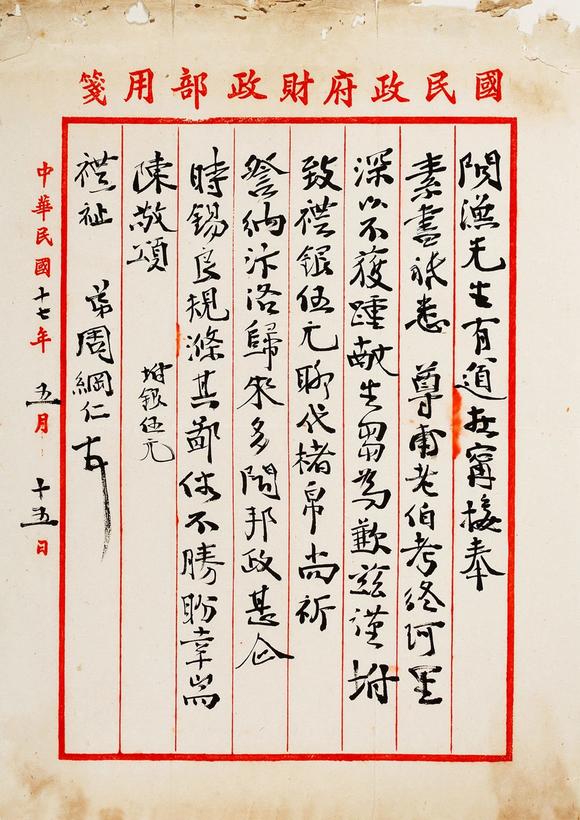 國民政府財政部用箋
漁先生有道在甯接奉
素書祗悉 尊甫老伯考終阿里
深以不獲踵獻生芻為歉茲謹坿
致禮銀伍元聊代楮帛尚祈
詧納汴洛歸來多閱邦政甚企
時錫良規滌其鄙俗不勝盼幸耑
陳敬頌
坿銀伍元
禮祉 弟周綱仁
中華民國十七年五月十五日